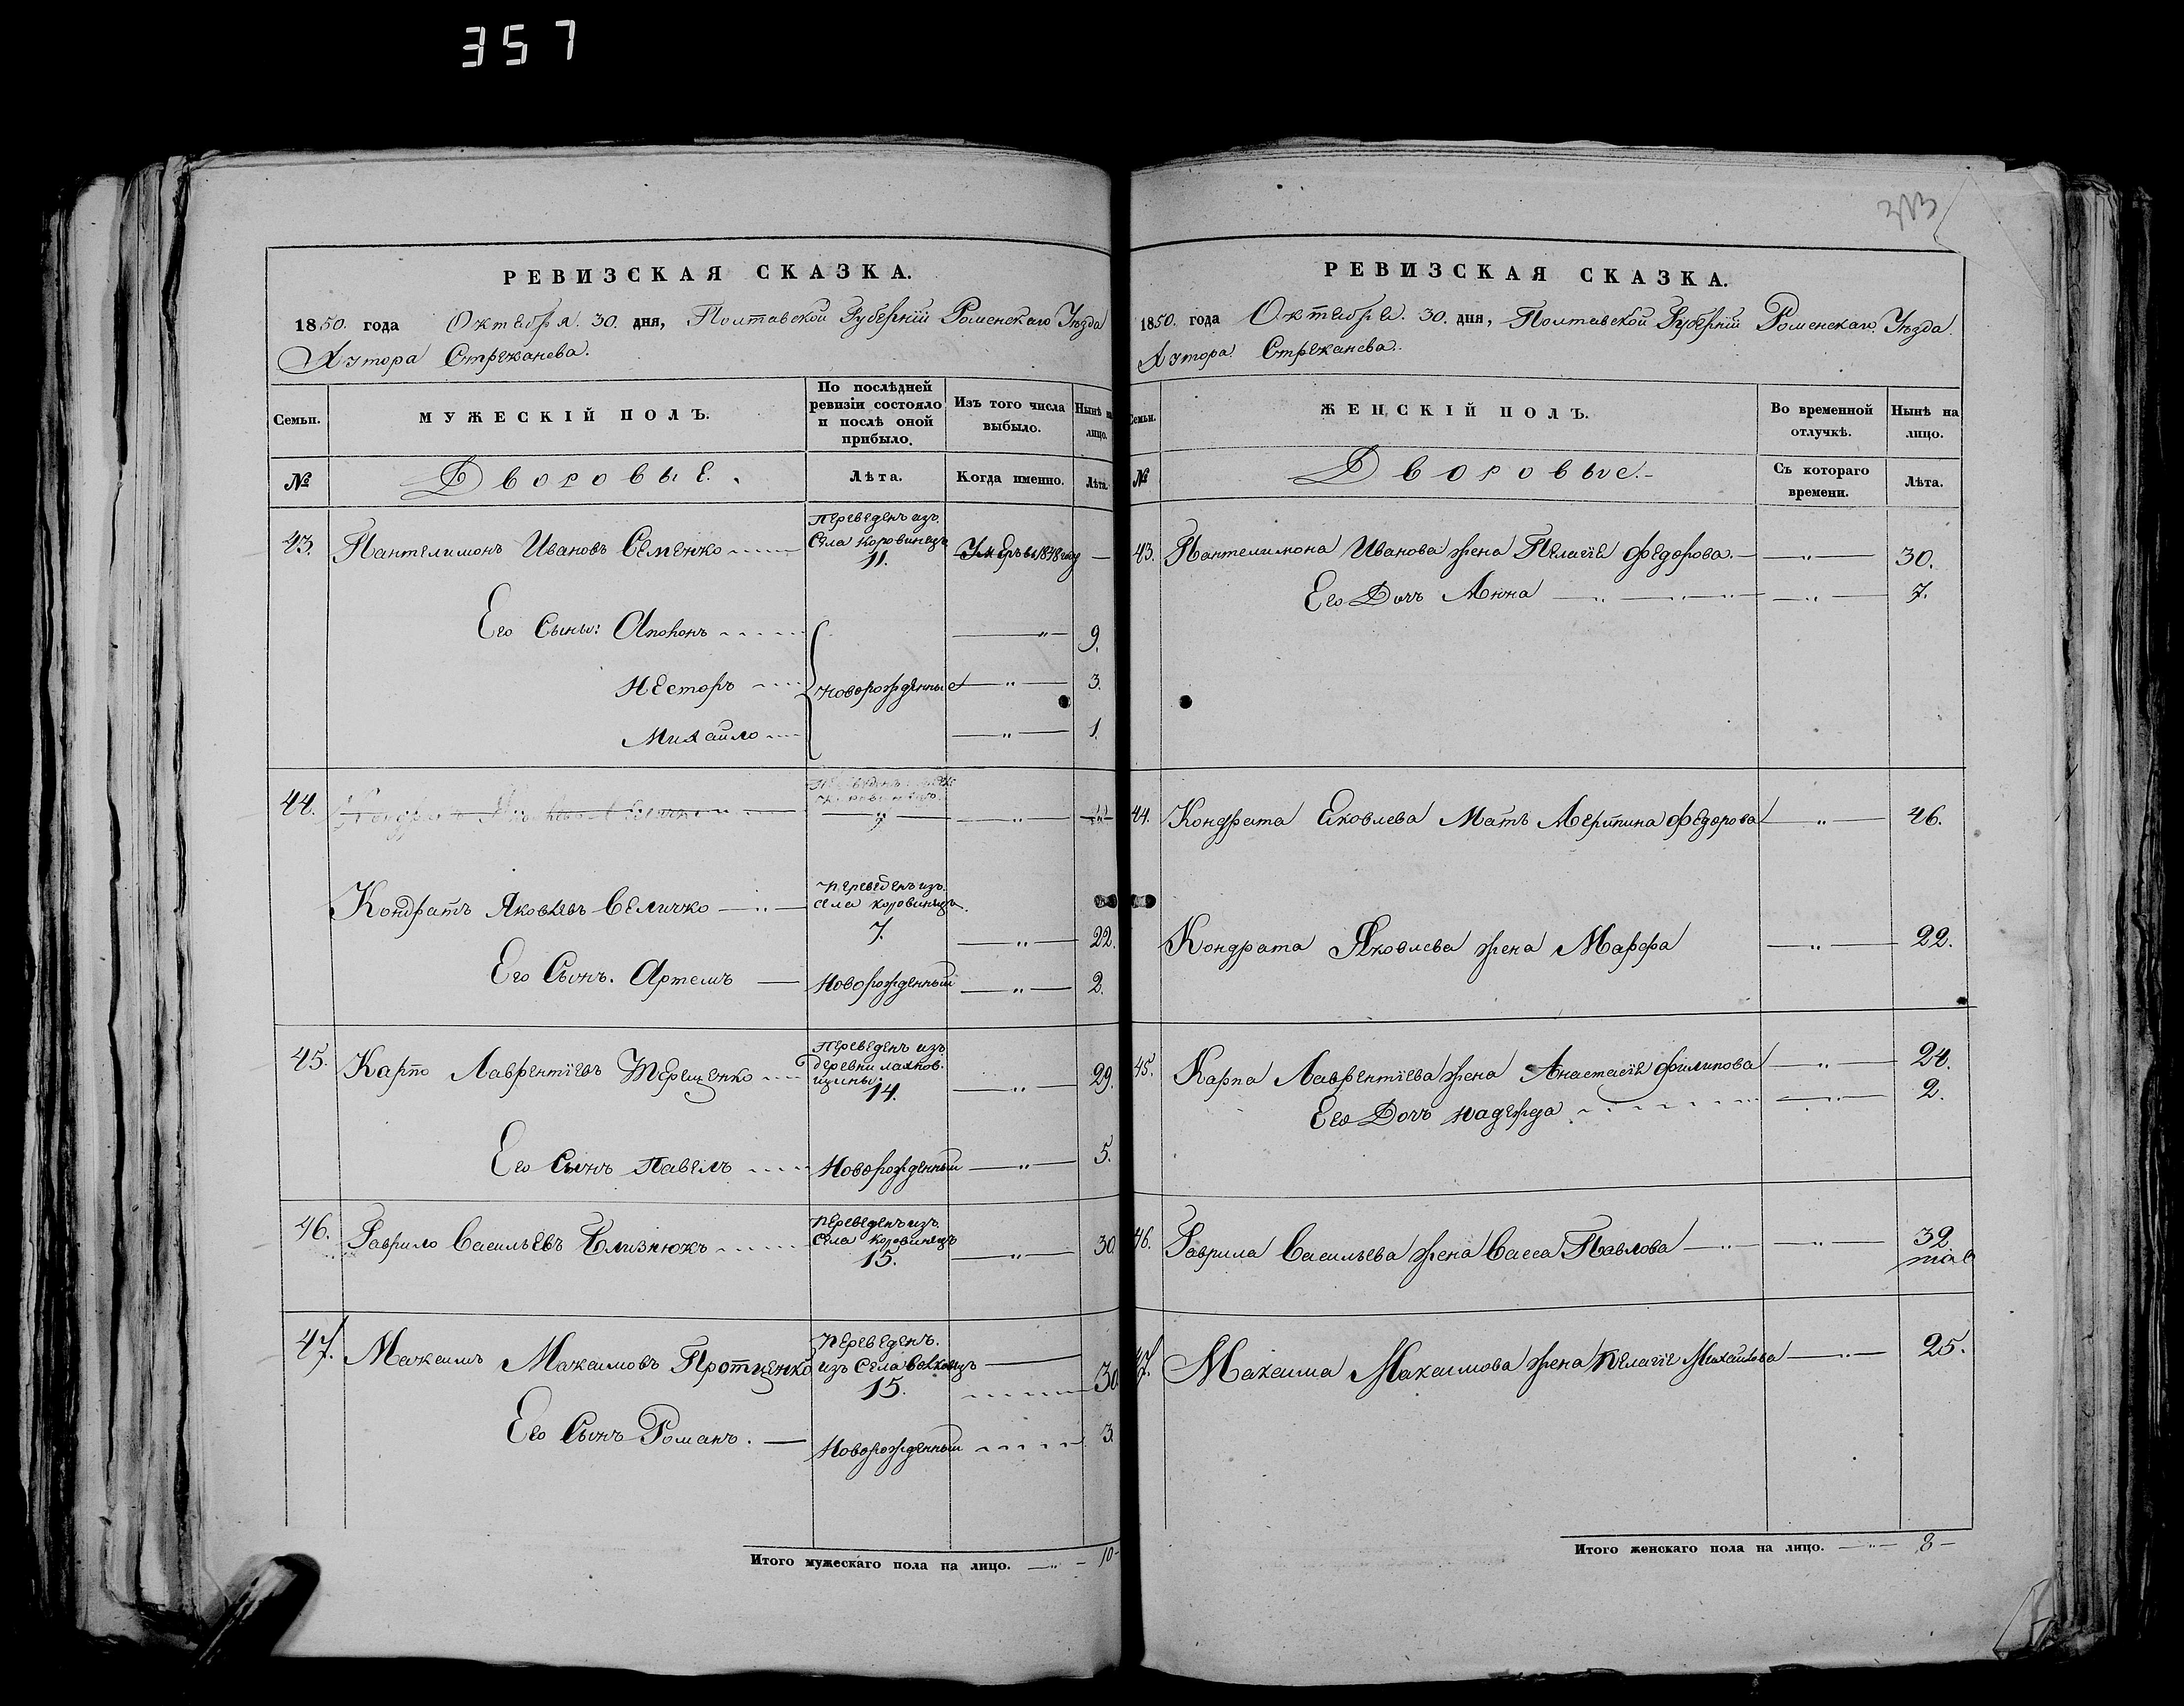 357
313
РЕВИЗСКАЯ СКАЗКА.
1850. года Октября. 30. дня, Полтавской Губерніи Роменскаго Уѣзда
Хутора Стрежанева.
Семьи.
МУЖЕСКІЙ ПОЛЪ.
По послѣдней
ревизіи состояло
и послѣ оной
прибыло.
Изъ того числа
выбыло.
Нынѣ на
лицо.
№
Дворовые.
Лѣта.
Когда именно.
Лѣта.
43. Пантелимонъ Ивановъ Семенко
Переведенъ изъ
Села Коровинецъ
11.
Умеръ в 1848 году
Его Сыны: 9.
Несторъ Новорожденные 3.
Михайло 1.
44.
Кондратъ Яковлевъ Величко
переведенъ изъ
села Коровинецъ
7. 22.
Его Сынъ. Артемъ Новорожденный 2.
45. Карпо Лаврентіевъ Терещенко
Переведенъ изъ
деревни
14. 29.
Его Сынъ Павелъ Новорожденный 5.
46. Гаврило Васильевъ Близнюкъ
переведенъ изъ
Села Коровинецъ
15. 30.
47. Максимъ Максимовъ Протценко
переведенъ
изъ Села
15. 30.
Его Сынъ Романъ. Новорожденный 3.
Итого мужескаго пола на лицо. 10
РЕВИЗСКАЯ СКАЗКА.
1850. года Октебре. 30. дня, Полтавской Губерніи Роменскаго Уѣзда.
Хутора Стрежанева.
Семьи.
ЖЕНСКІЙ ПОЛЪ.
Во временной
отлучкѣ.
Нынѣ на
лицо.
№
Дворовые.
Съ котораго
времени.
Лѣта.
43. Пантелимона Иванова жена Пелагіе Федорова. 30.
Его Дочъ Анна 7.
44. Кондрата Яковлева Мать Федорова 46.
Кондрата Яковлева жена Марфа 22.
45. Карпа Лаврентіева жена Анастасіе Филипова 24.
Его Дочъ Надежда 2.
46. Гаврила Васильева жена Васса Павлова 32
47. Максима Максимова жена Пелагіе Михайлова 25.
Итого женскаго пола на лицо. 8